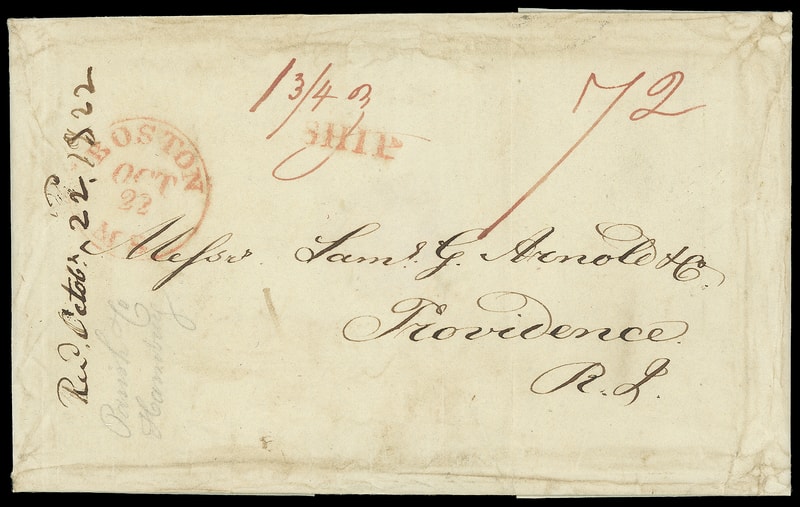 1 3/4 oz
72
SHIP
BOSTON
OCT
22
MS
Messrs. Saml. G. Arnold & Co.
Providence
R. I.
Recd. Octobr. 22. 1822
Parish &
Hamburg